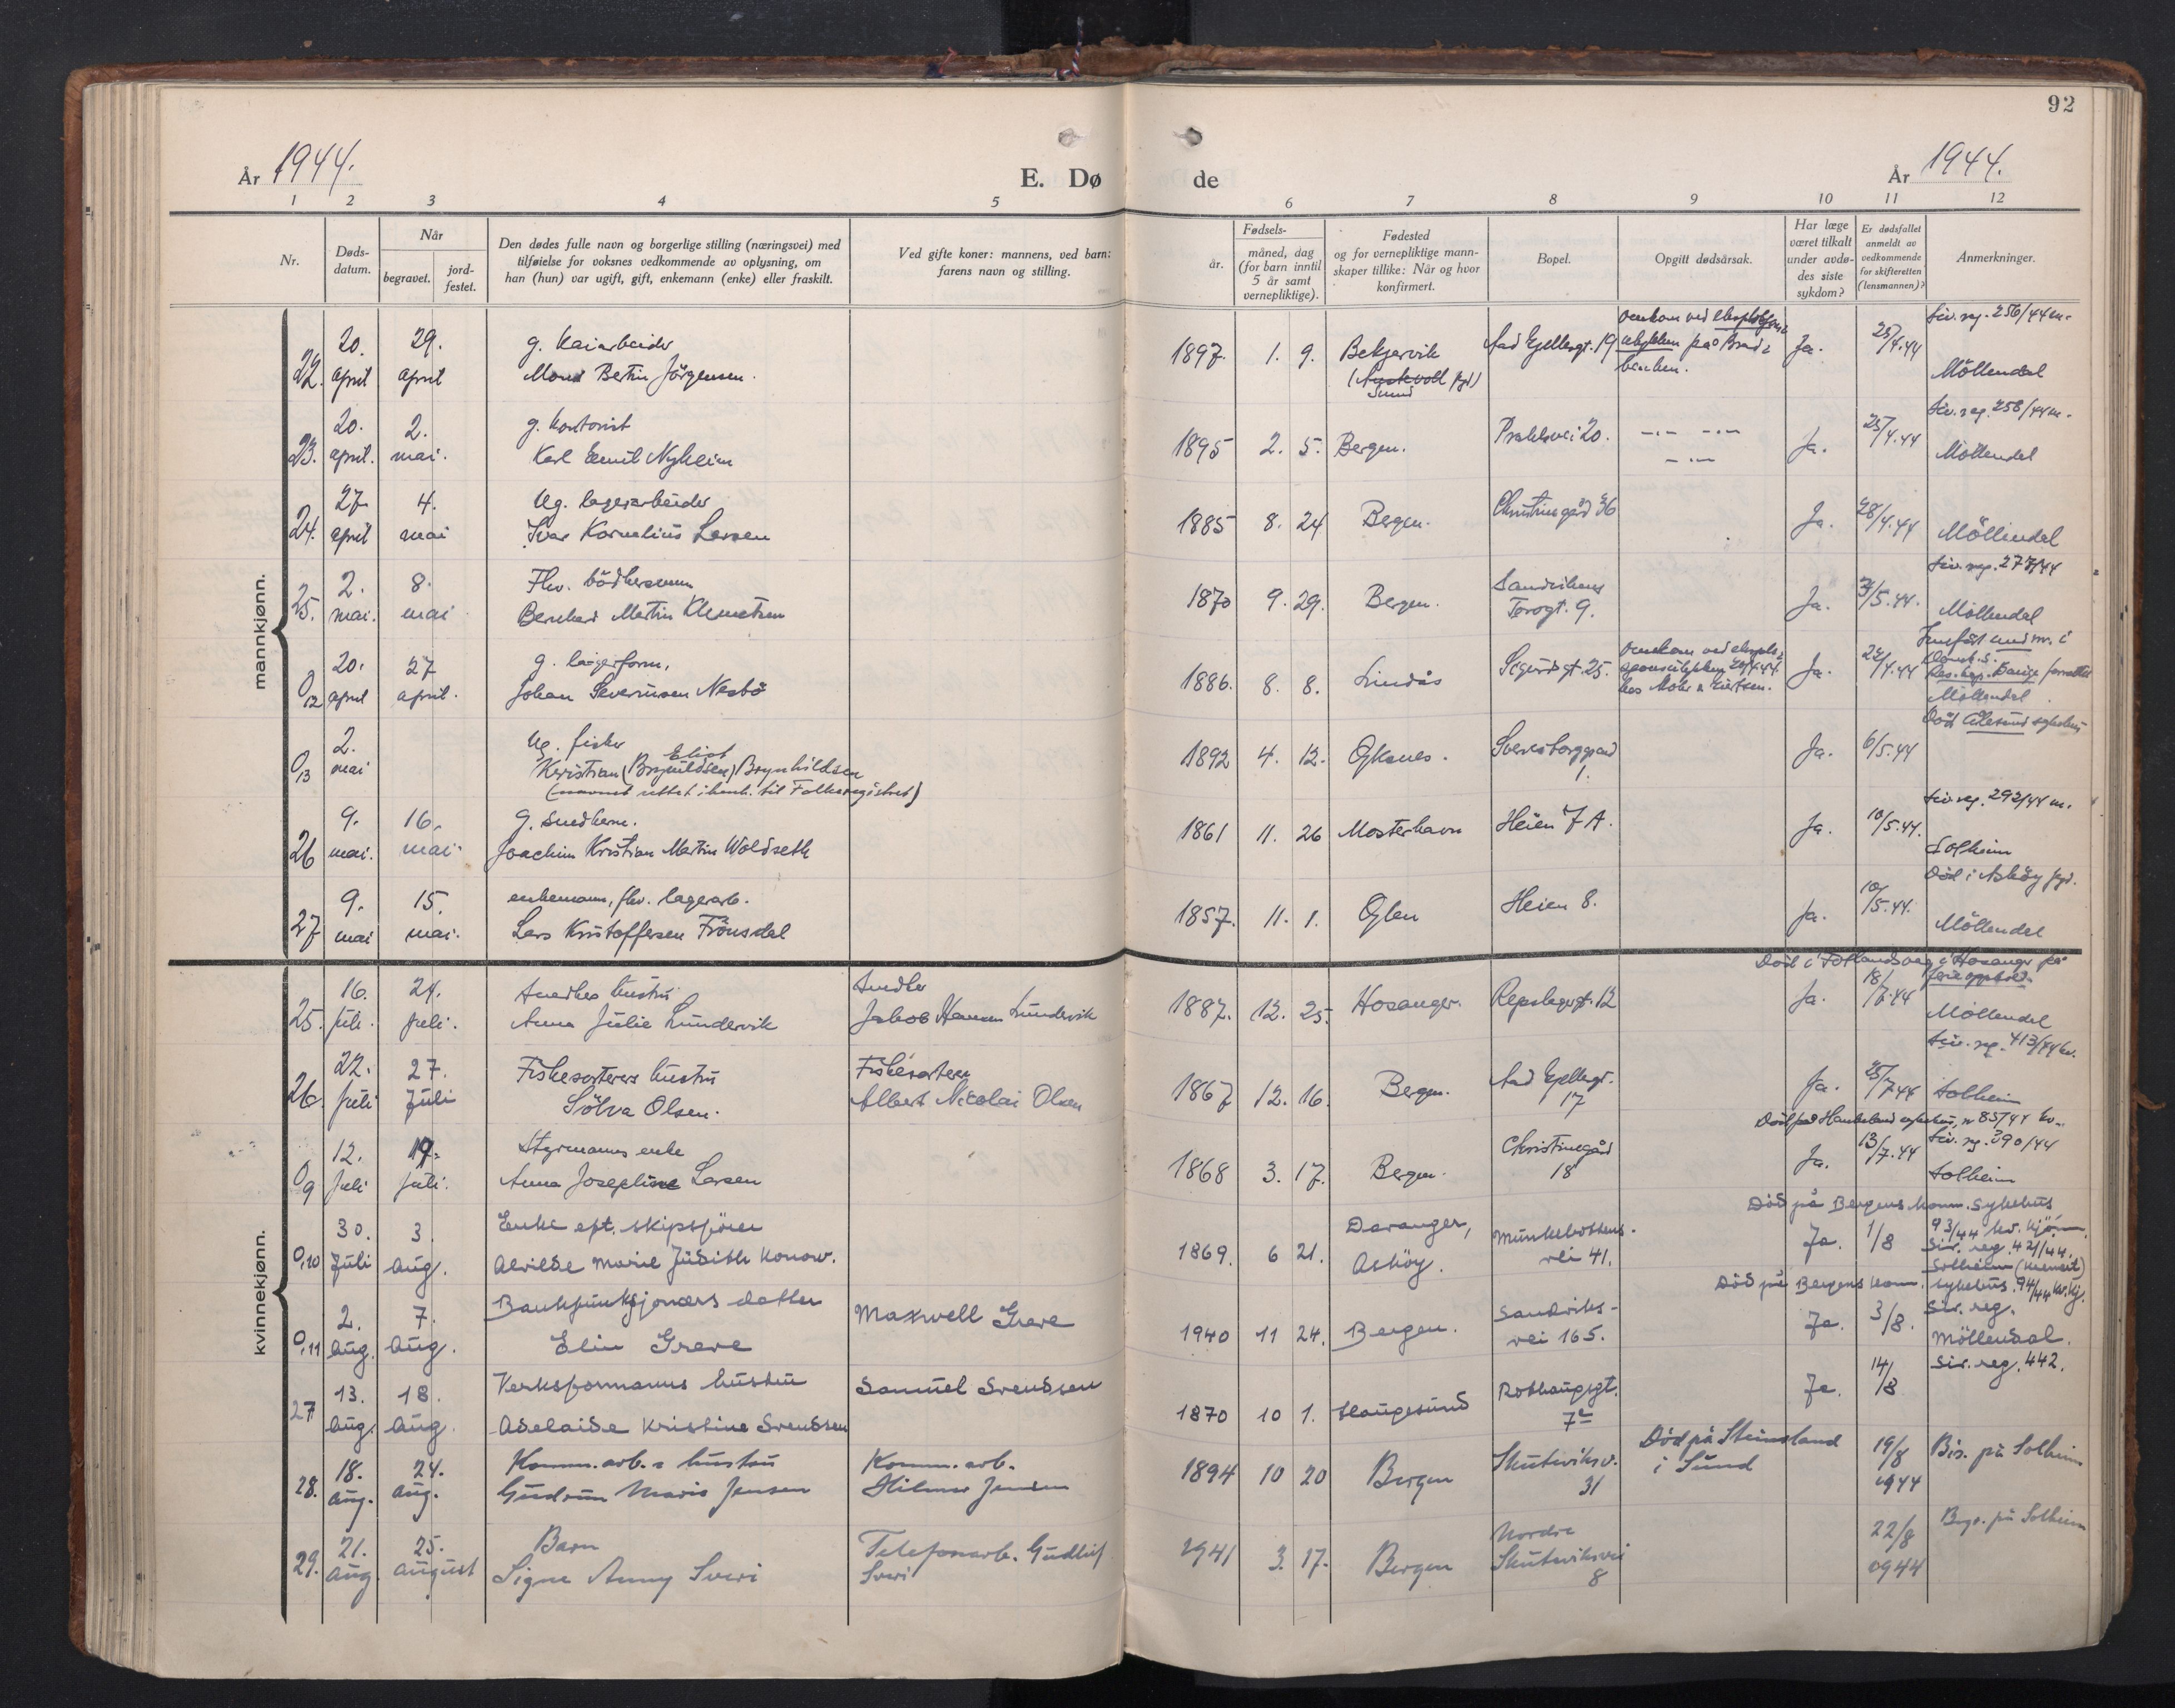 92
År 1944.
E. Dø
de
År 1944.
1 2 3 4 5 6 7 8 9 10 11 12
Nr.
Døds-
datum.
Når
begravet.
jord-
festet.
Den dødes fulle navn og borgerlige stilling (næringsvei) med
tilføielse for voksnes vedkommende av oplysning, om
han (hun) var ugift, gift, enkemann (enke) eller fraskilt.
Ved gifte koner: mannens, ved barn:
farens navn og stilling.
Fødsels-
år.
måned, dag
(for barn inntil
5 år samt
vernepliktige).
Fødested
og for vernepliktige mann-
skaper tillike: Når og hvor
konfirmert.
Bopel.
Opgitt dødsårsak.
Har læge
været tilkalt
under avdø-
des siste
sykdom?
Er dødsfallet
anmeldt av
vedkommende
for skifteretten
(lensmannen)?
Anmerkninger.
mannkjønn.
Siv. reg. 256/44 m.
22. 20. april 29. april g. kaiarbeider
Mons Bertin Jörgensen.
1897. 1. 9. Bekjarvik
(Austevoll pgd)
Sund
Aad Gjellesgt. 19
omkom ved eksplosjons
ulykken på Brad-
benken.
Ja. 25/4.44
Möllendal
Siv. reg. 258/44 m.
23. 20. april. 2. mai. g. kontorist
Karl Emil Nyheim
1895 2. 5. Bergen. Prahlsvei 20. -"- -"-
-"-
Ja. 25/4.44 Möllendal
24. 27 april 4. mai Ug. lagerarbeider
Ivar Kornelius Larsen
1885 8. 24 Bergen. Christinegård 36 Ja. 28/4.44 Möllendal
Siv. reg. 277/44
25. 2. mai. 8. mai Fhv. bödkersvenn
Bernhard Martin Klemetsen
1870 9. 29. Bergen. Sandvikens
Torvgt. 9.
Ja. 3/5.44. Möllendal
012 20. april 27 april. g. lagerform.
Johan Severinsen Nesbö
1886. 8. 8. Lindås Sigurdsgt. 25.
omkom ved eksplo-
sjonsulykken 20/4.44
hos Mohr &
Ja. 22/4.44
Innfört und nr. i
Domk. s.
Möllendal
Död Ålesund sykehus
013 2. mai Ug. fisker
Eliot
Kristian (Brynildsen) Brynhildsen
(navnet rettet i henh. til Folkeregistret)
1892 4. 12. Øksnes. Sverresborggaard
1.
Ja. 6/5.44
Siv. reg. 292/44 m.
26 9. mai. 16. mai g. snedkerm.
Joachim Kristian Martin Woldseth
1861 11. 26 Mosterhavn Heien 7 A. Ja. 10/5.44. Solheim
Död i Asköy pgd.
27 9. mai 15. mai. enkemann, fhv. lagerarb.
Lars Kristoffersen Frönsdal
1857. 11. 1. Heien 8. Ja. 10/5.44. Möllendal
kvinnekjønn.
Död i i Hosanger på
ferieopphold.
25. 16. juli. 24. juli. Snedkers hustru
Anna Julie Lundervik
Snedker
Jakob Hansen Lundervik
1887. 12. 25. Hosanger. Repslagergt. 12 Ja. 18/7.44 Möllendal
Siv. reg. 413/44 kv.
26. 22. juli 27. Juli Fiskesorterers hustru
Sölva Olsen.
Fiskesorterer
Albert Nicolai Olsen
1867 12. 16. Bergen. Aad Gjellesgt.
17
Ja. 25/7.44 Solheim
Död på Haukeland sykehus, nr 85/44 kv.
Siv. reg. 390/44
09 12. Juli 19. juli. Styrmanns enke
Anna Josephine Larsen
1868 3. 17. Bergen. Christinegård
18
Ja. 13/7.44 Solheim
Död på Bergens komm. sykehus
93/44 kv. kjönn.
0,10 30. Juli 3. aug. Enke eft. skipsförer
Alvilde Marie Judith Konow.
1869. 6 21. Davanger,
Asköy.
Munkebotns-
vei 41.
Ja. 1/8 Siv. reg. 421/44.
Solheim (kremert)
Död på Bergens kom. sykehus. 94/44 kv. kj.
0,11 2. aug. 7. aug. Bankfunksjonærs datter
Elin Greve
Maxwell Greve
1940 11 24. Bergen. Sandviks-
vei 165.
Ja. 3/8. Siv. reg.
Möllendal.
27 13. aug. 18. aug. Verksformanns hustru
Adelaide Kristine Svendsen
Samuel Svendsen
1870 10 1. Haugesund Rothaugsgt.
7c
Ja. 14/8 Siv. reg. 442.
28. 18. aug. 24. aug. Komm. arb.s hustru
Gudrun Maris Jensen
Komm. arb.
Hilmar Jensen
1894 10 20 Bergen Skuteviksv.
31
Död på Steinsland
i Sund
19/8
1944
Bis. på Solheim
29. 21. aug. 25. august Barn
Signe Anny Sveri
Telefonarb. Gudleif
Sveri
1941 3. 17. Bergen Nordre
Skuteviksvei
8
22/8
1944
Begr. på Solheim